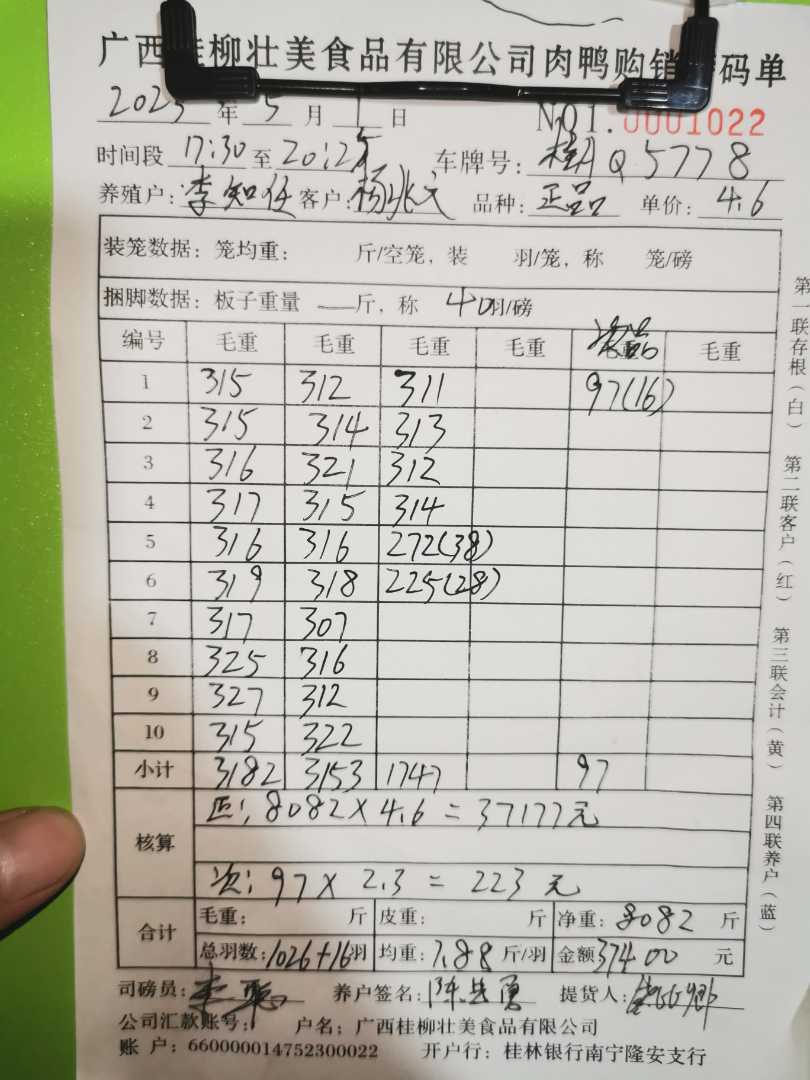 广西桂柳壮美食品有限公司肉鸭购销 码单
2023年5月1日 NO1.0001022
时间段 17:30至20:25 车牌号: 桂AQ5778
养殖户: 李知任 客户: 杨兆文 品种: 正品 单价: 4.6
装笼数据: 笼均重: 斤/空笼, 装 羽/笼, 称 笼/磅
捆脚数据: 板子重量 — 斤, 称 40羽/磅
编号 毛重 毛重 毛重 毛重 次品 毛重
1 315 312 311 97(16)
2 315 314 313
3 316 321 312
4 317 315 314
5 316 316 272(38)
6 319 318 225(28)
7 317 307
8 325 316
9 327 312
10 315 322
小计 3182 3153 1747 97
核算
正: 8082×4.6=37177元
次: 97×2.3=223元
合计
毛重: 斤 皮重: 斤 净重: 8082 斤
总羽数: 1026+16羽 均重: 7.88 斤/羽 金额 37400 元
司磅员: 养户签名: 提货人:
公司汇款账号: 户名: 广西桂柳壮美食品有限公司
账 户: 660000014752300022 开户行: 桂林银行南宁隆安支行
第一联存根(白) 第二联客户(红) 第三联会计(黄) 第四联养户(蓝)